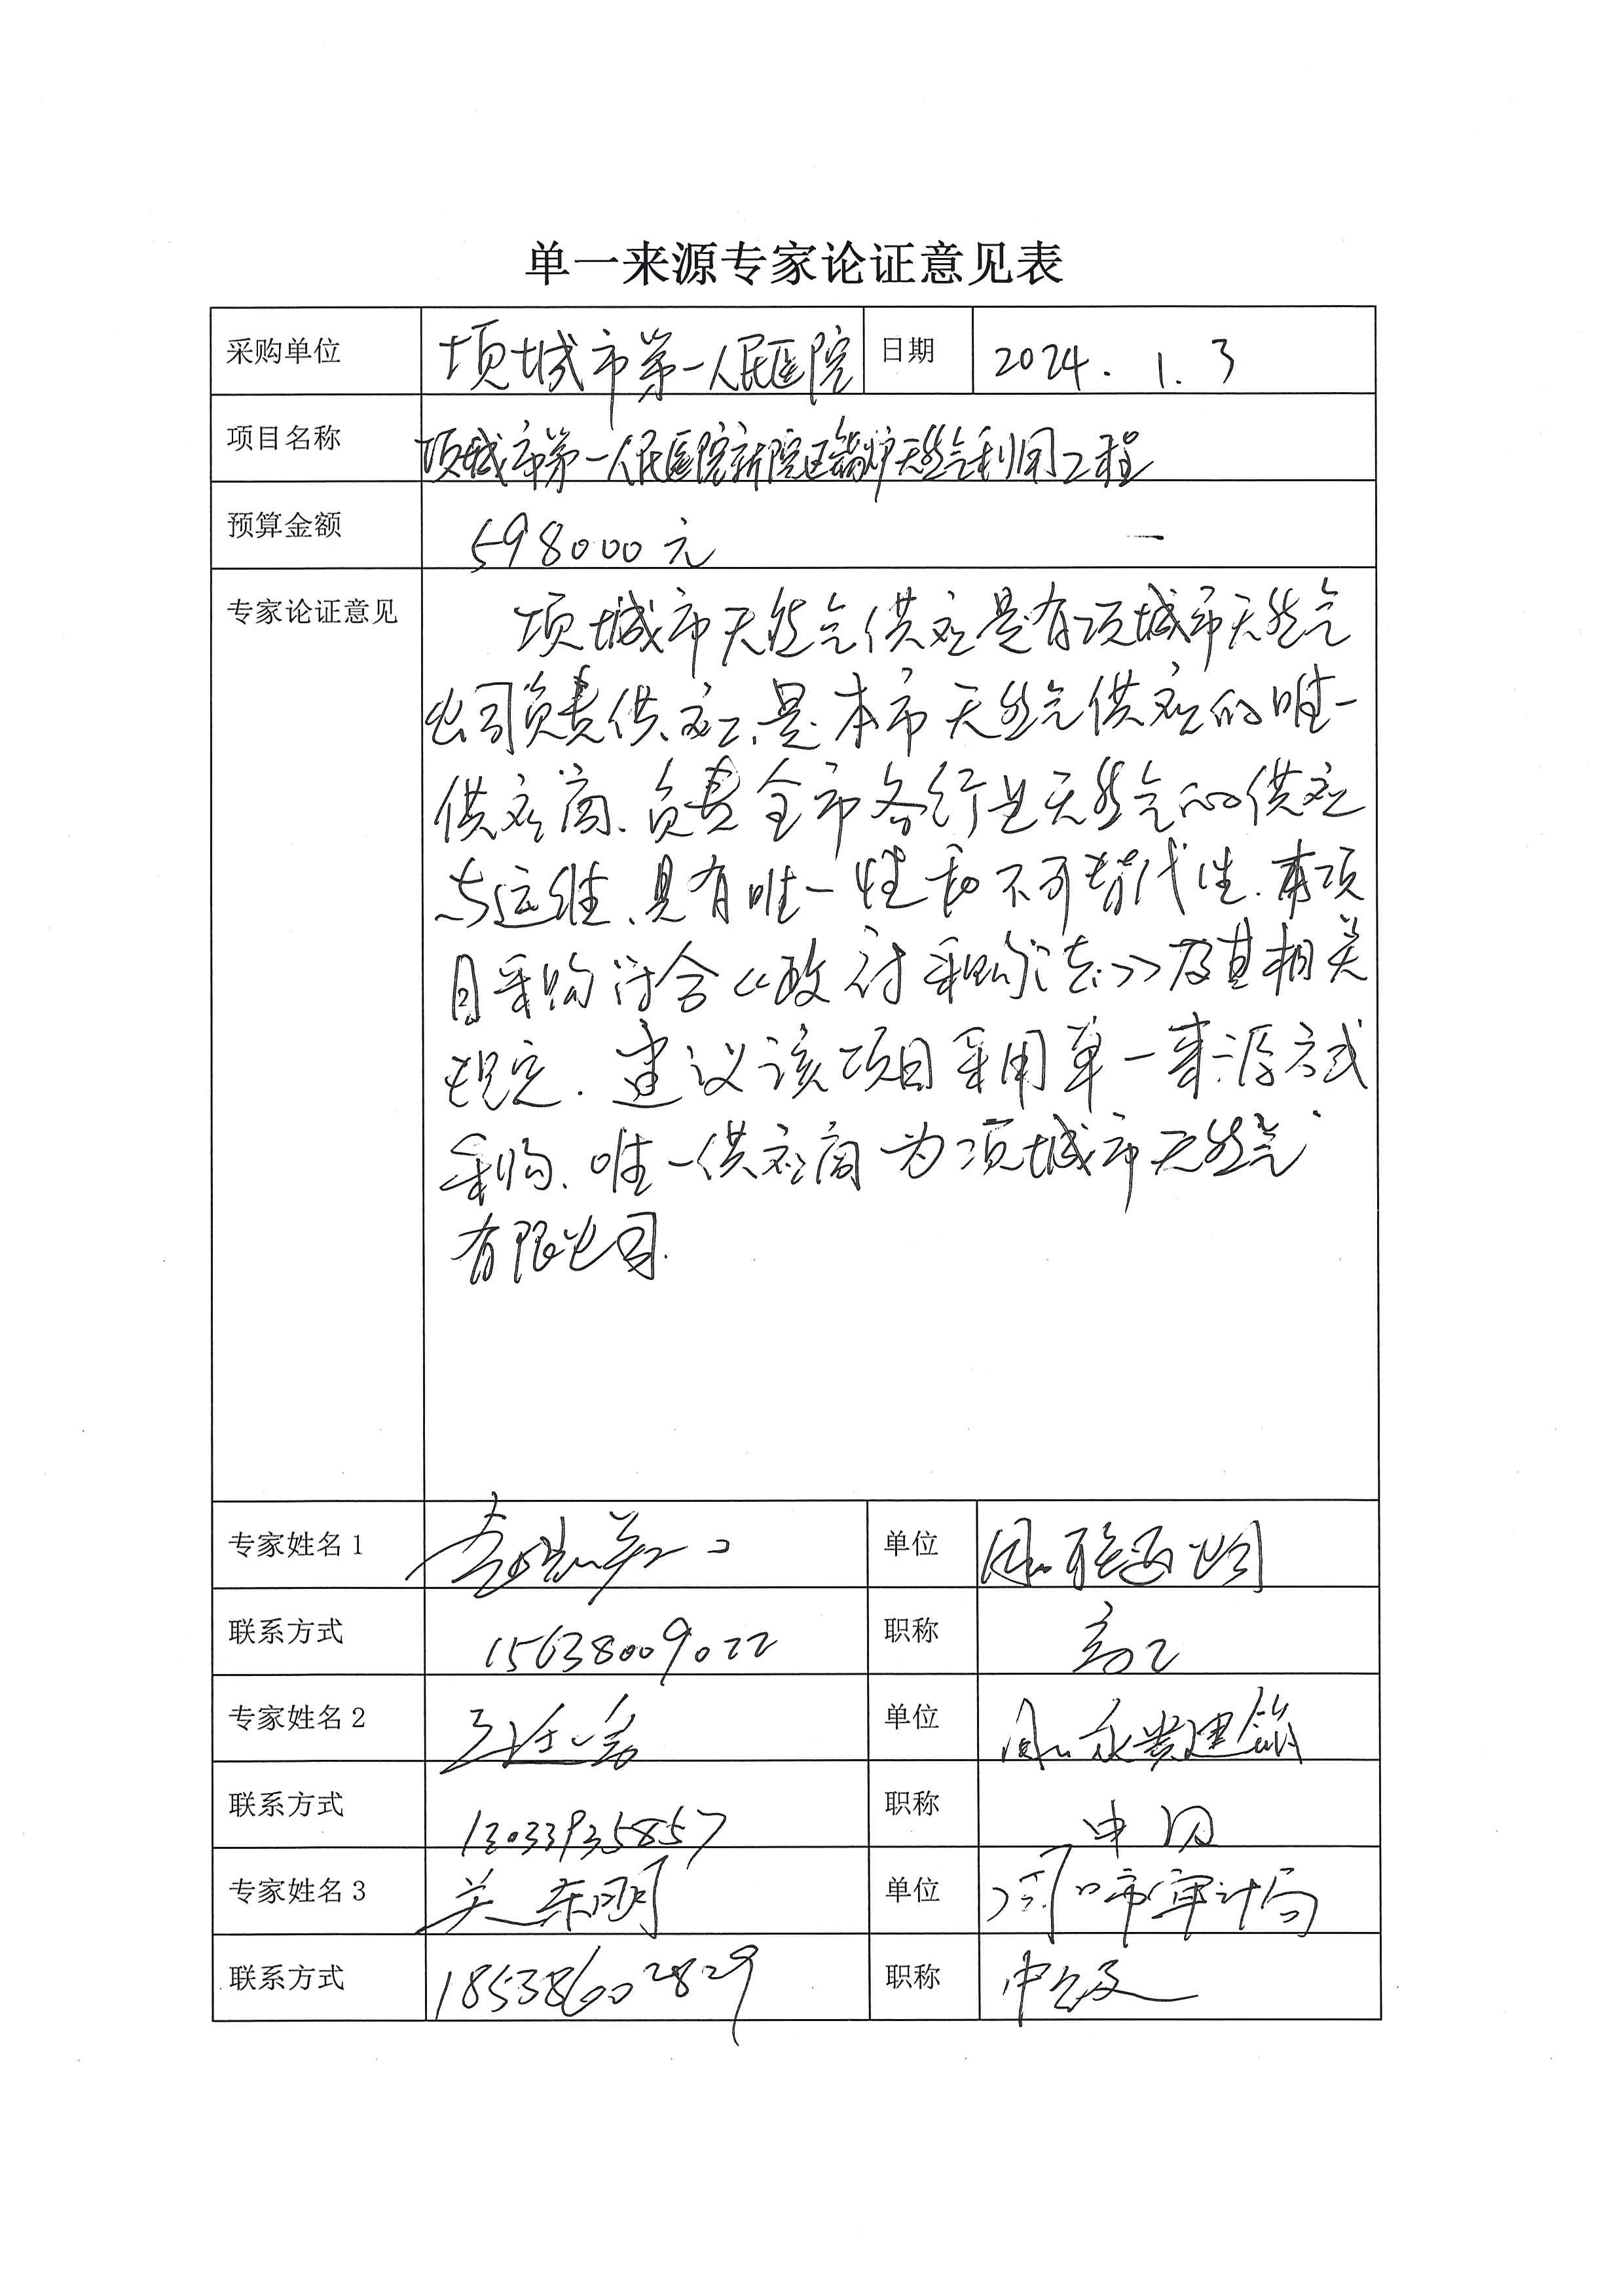 单一来源专家论证意见表
采购单位 项城市第一人民医院 日期 2024.1.3
项目名称 项城市第一人民医院新院区锅炉天然气利用工程
预算金额 598000元
专家论证意见 项城市天然气供应是有项城市天然气
公司负责供应、是本市天然气供应的唯一
供应商、负责全市各行业天然气的供应
与运维、具有唯一性和不可替代性.本项
目采购符合《政府采购法》及其相关
规定.建议该项目采用单一来源方式
采购、唯一供应商为项城市天然气
有限公司.
专家姓名1 单位 公司
联系方式 15638009022 职称 高工
专家姓名2 单位 建筑
联系方式 13033935857 职称 中
专家姓名3 关东明 单位 周口市审计局
联系方式 18538602829 职称 中级